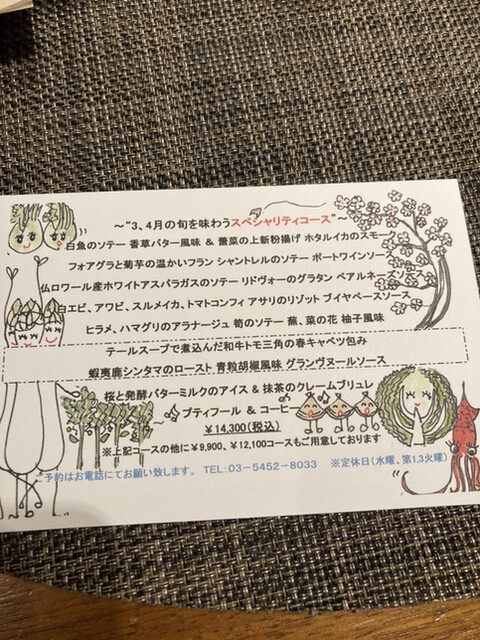 ～"3、4月の旬を味わうスペシャリティコース"～
白魚のソテー 香草バター風味 & 蕾菜の上新粉揚げ ホタルイカのスモー
フォアグラと菊芋の温かいフラン シャントレルのソテー ポートワインソー
仏ロワール産ホワイトアスパラガスのソテー リドヴォーのグラタン ペアルネーズソース
白エビ、アワビ、スルメイカ、トマトコンフィ アサリのリゾット ブイヤベースソース
ヒラメ、ハマグリのアラナージュ 筍のソテー 蕪、菜の花 柚子風味
テールスープで煮込んだ和牛トモ三角の春キャベツ包み
蝦夷鹿シンタマのロースト 青粒胡椒風味 グランヴヌールソース
桜と発酵バターミルクのアイス & 抹茶のクレームブリュレ
プティフール & コーヒー
￥14,300(税込)
※上記コースの他に￥9,900、￥12,100コースもご用意しております
ご予約はお電話にてお願い致します。 TEL:03-5452-8033 ※定休日(水曜、第1,3火曜)